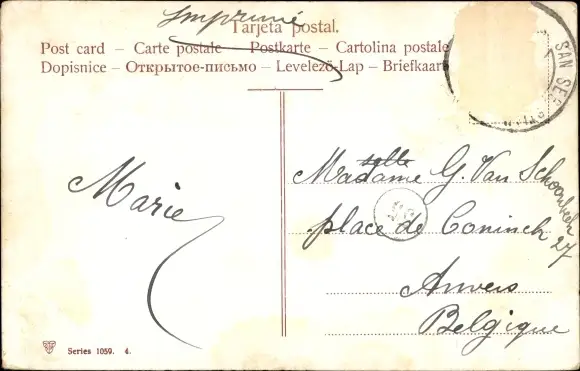 Imprimé
Tarjeta postal.
Post card – Carte postale – Postkarte – Cartolina postale
Dopisnice – Открытое-письмо – Levelező-Lap – Briefkaart
SAN SEB
Marie
Madame G. Van Schoonbeek
place de Coninck 27
Anvers
Belgique
Series 1059. 4.